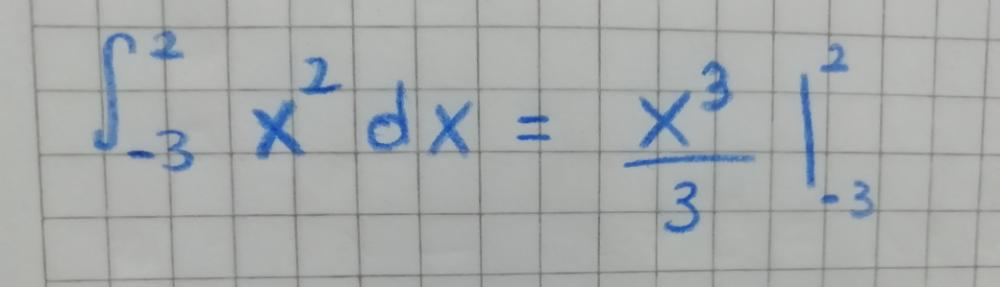 ∫₋₃² x² dx = x³/3 |₋₃²